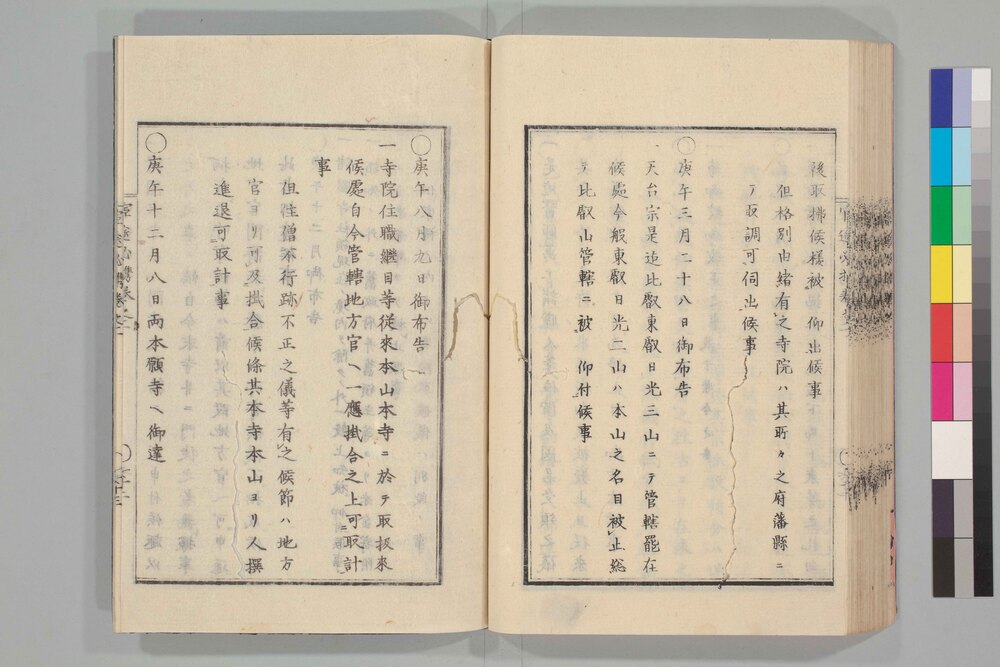 後取拂候様被 仰出候事
但格別由緒有之寺院ハ其所々之府藩縣ニ
テ取調可伺出候事
○庚午三月二十八日御布告
一天台宗是迄比叡東叡日光三山ニテ管轄罷在
候處今般東叡日光二山ハ本山之名目被止総
テ比叡山管轄ニ被 仰付候事
○庚午八月九日御布告
一寺院住職継目等従來本山本寺ニ於テ取扱來
候處自今管轄地方官ヘ一應掛合之上可取計
事
但住僧不行跡不正之儀等有之候節ハ地方
官ヨリ可及掛合候條其本寺本山ヨリ人撰
進退可取計事
○庚午十二月八日両本願寺ヘ御達